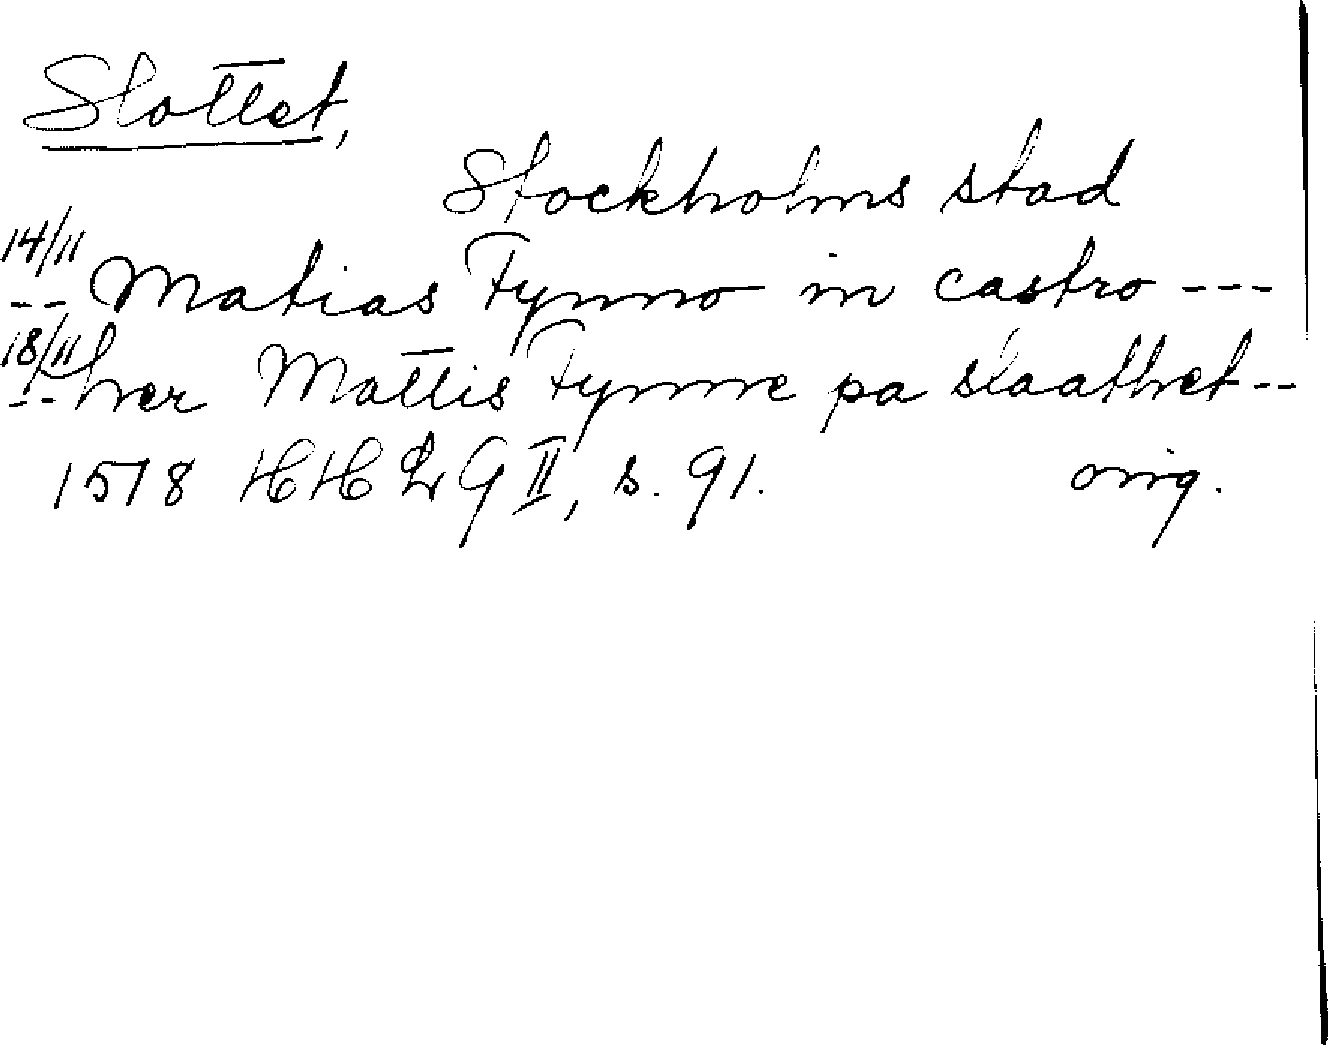 Slottet,
Stockholms stad
14/11
-- Matias Fynno in castro ---
18/11
-- her Mattis Fynne pa slaathet --
1518 HHLG II, s. 91. orig.